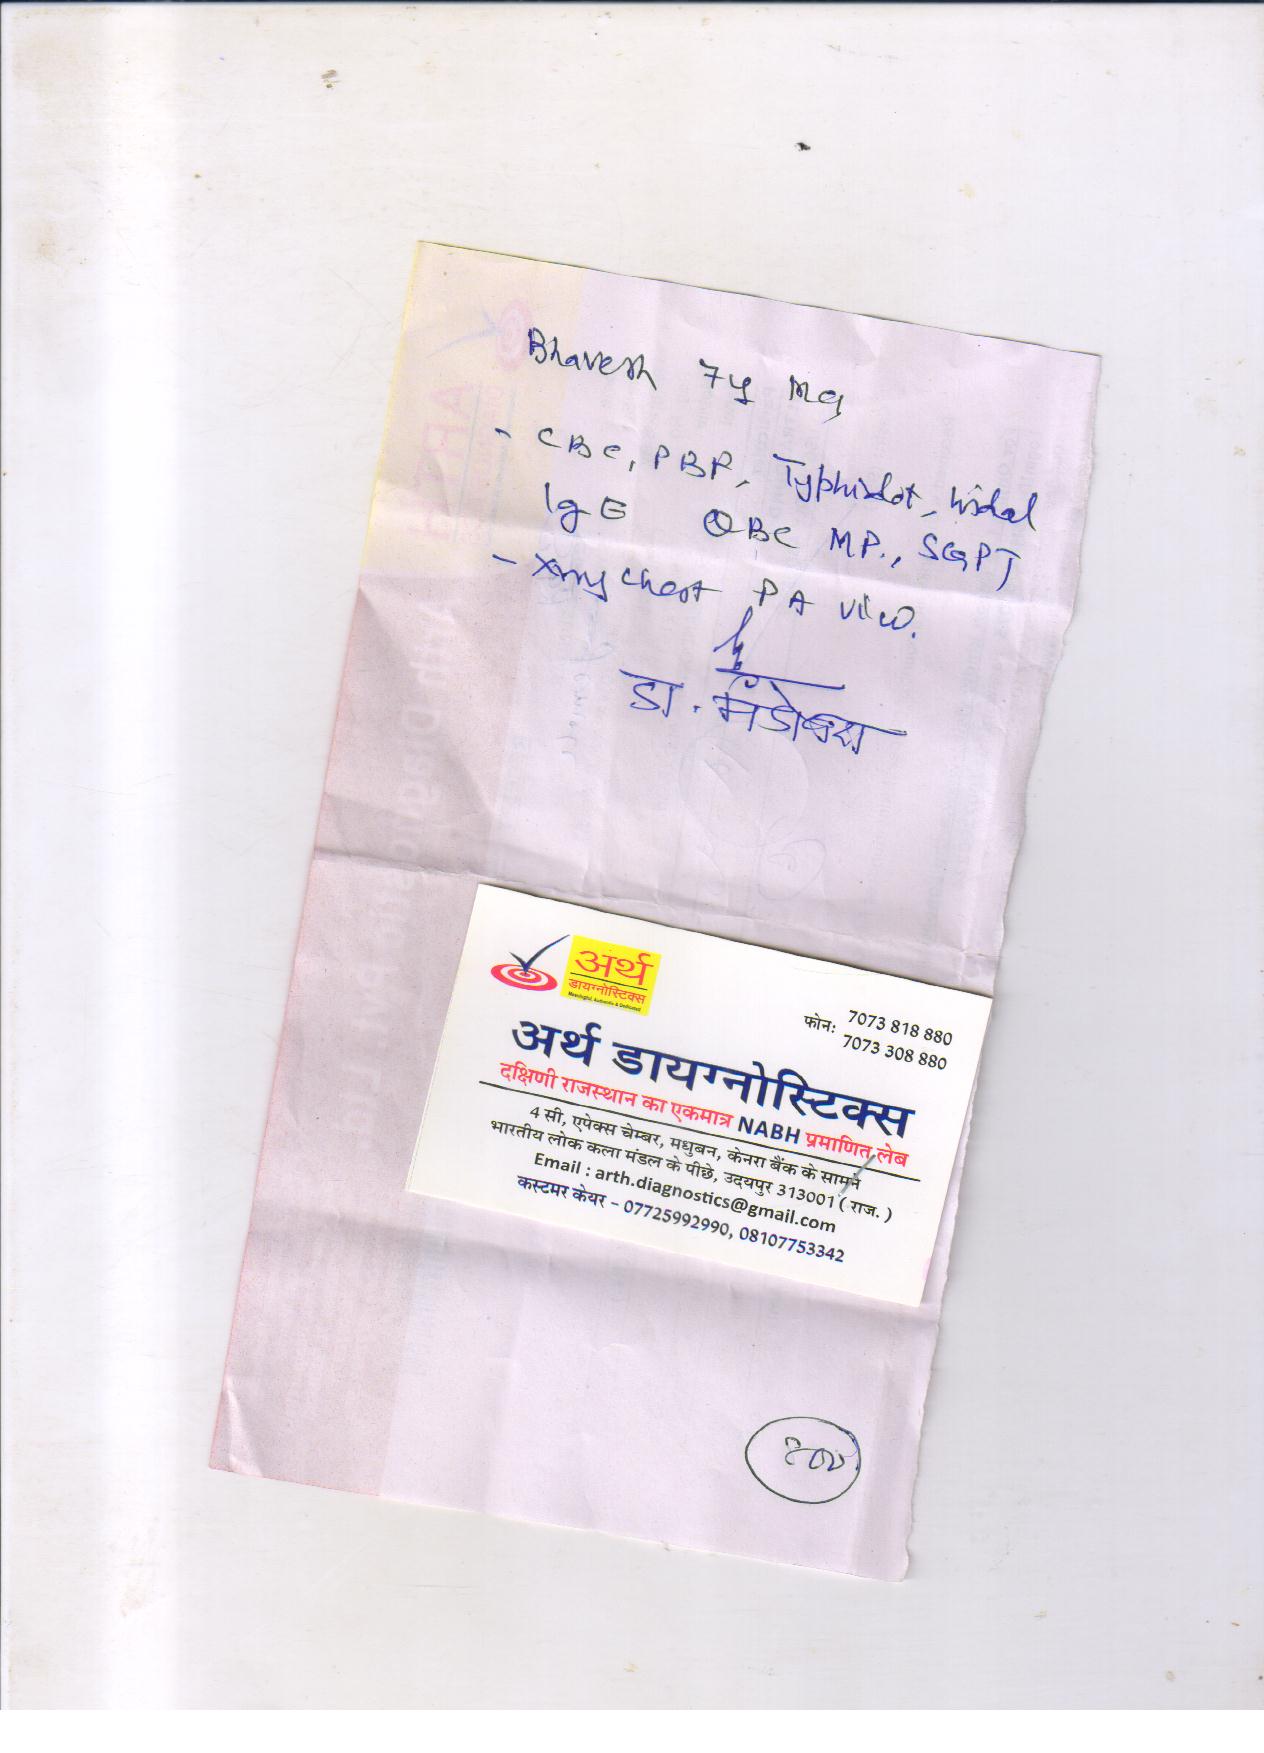 Bhavesh 7y Mg
- CBC, PBF, Typhidot, Widal
IgE QBC MP., SGPT
- Xray Chest PA view.
डा.
अर्थ
डायग्नोस्टिक्स
Meaningful, Authentic & Dedicated
फोन: 7073 818 880
7073 308 880
अर्थ डायग्नोस्टिक्स
दक्षिणी राजस्थान का एकमात्र NABH प्रमाणित लेब
4 सी, एपेक्स चेम्बर, मधुबन, केनरा बैंक के सामने
भारतीय लोक कला मंडल के पीछे, उदयपुर 313001 ( राज. )
Email : arth.diagnostics@gmail.com
कस्टमर केयर – 07725992990, 08107753342